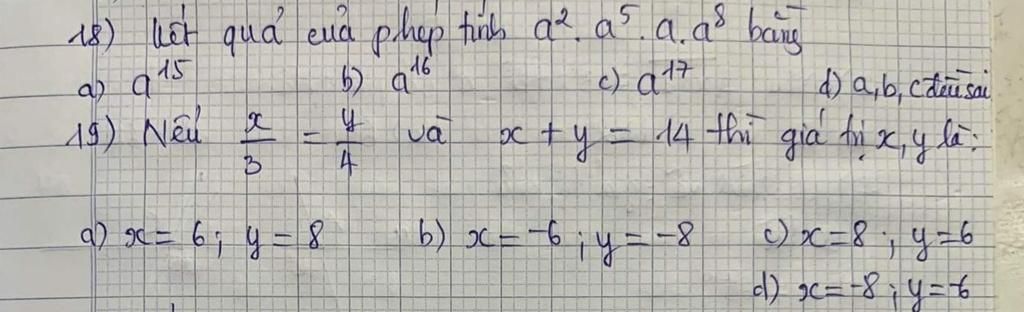 18) Kết quả của phép tính a². a⁵. a. a⁸ bằng
a) a¹⁵ b) a¹⁶ c) a¹⁷ d) a, b, c đều sai
19) Nếu x/3 = y/4 và x + y = 14 thì giá trị x, y là:
a) x = 6; y = 8 b) x = -6; y = -8 c) x = 8; y = 6
d) x = -8; y = -6